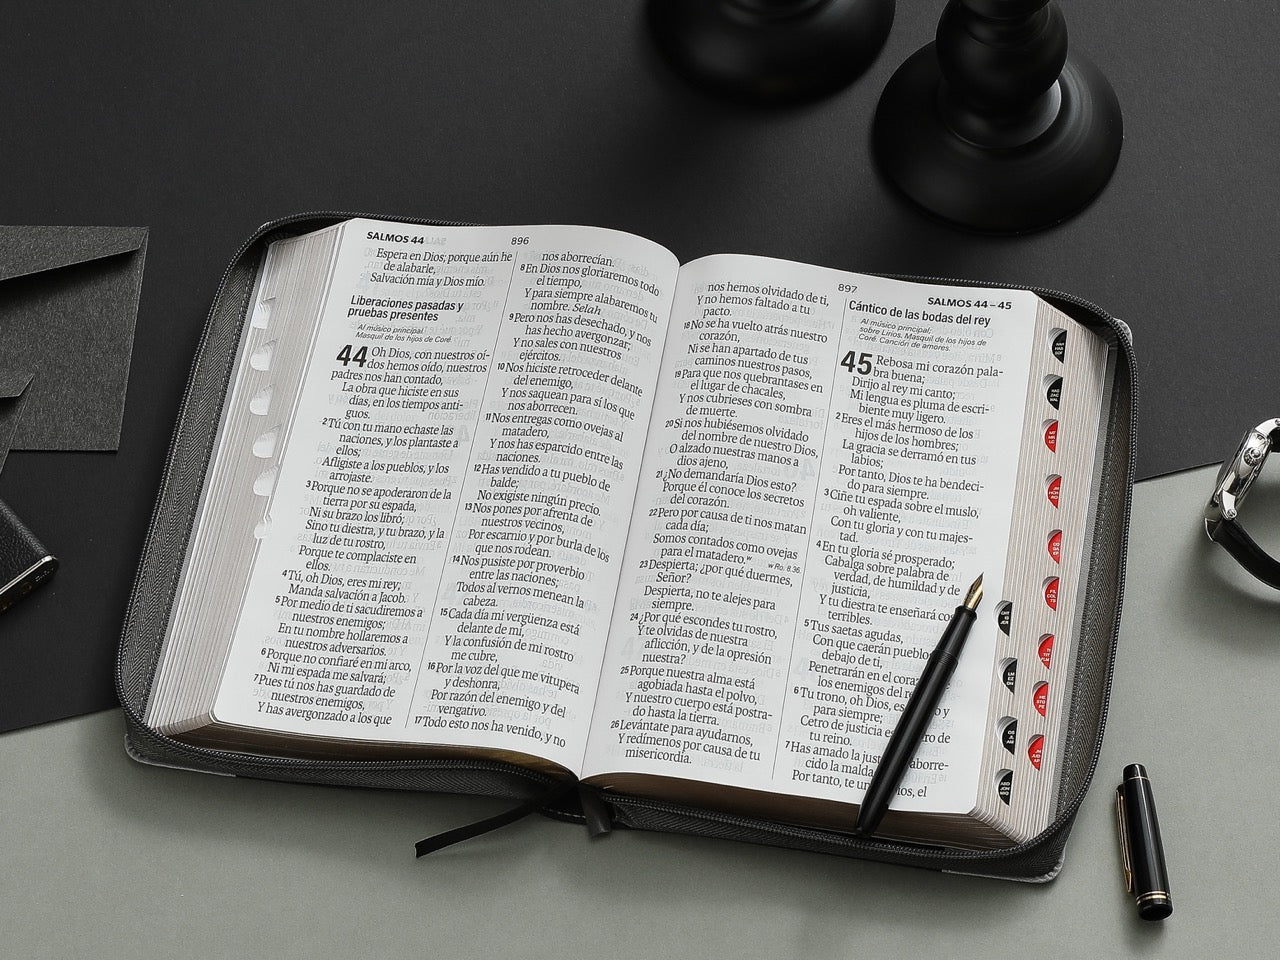 SALMOS 44
896
Espera en Dios; porque aún he
de alabarle,
Salvación mía y Dios mío.
Liberaciones pasadas y
pruebas presentes
Al músico principal.
Masquil de los hijos de Coré.
44 Oh Dios, con nuestros oí-
dos hemos oído, nuestros
padres nos han contado,
La obra que hiciste en sus
días, en los tiempos anti-
guos.
2 Tú con tu mano echaste las
naciones, y los plantaste a
ellos;
Afligiste a los pueblos, y los
arrojaste.
3 Porque no se apoderaron de la
tierra por su espada,
Ni su brazo los libró;
Sino tu diestra, y tu brazo, y la
luz de tu rostro,
Porque te complaciste en
ellos.
4 Tú, oh Dios, eres mi rey;
Manda salvación a Jacob.
5 Por medio de ti sacudiremos a
nuestros enemigos;
En tu nombre hollaremos a
nuestros adversarios.
6 Porque no confiaré en mi arco,
Ni mi espada me salvará;
7 Pues tú nos has guardado de
nuestros enemigos,
Y has avergonzado a los que
nos aborrecían.
8 En Dios nos gloriaremos todo
el tiempo,
Y para siempre alabaremos tu
nombre. Selah
9 Pero nos has desechado, y nos
has hecho avergonzar;
Y no sales con nuestros
ejércitos.
10 Nos hiciste retroceder delante
del enemigo,
Y nos saquean para sí los que
nos aborrecen.
11 Nos entregas como ovejas al
matadero,
Y nos has esparcido entre las
naciones.
12 Has vendido a tu pueblo de
balde;
No exigiste ningún precio.
13 Nos pones por afrenta de
nuestros vecinos,
Por escarnio y por burla de los
que nos rodean.
14 Nos pusiste por proverbio
entre las naciones;
Todos al vernos menean la
cabeza.
15 Cada día mi vergüenza está
delante de mí,
Y la confusión de mi rostro
me cubre,
16 Por la voz del que me vitupera
y deshonra,
Por razón del enemigo y del
vengativo.
17 Todo esto nos ha venido, y no
897
SALMOS 44–45
nos hemos olvidado de ti,
Y no hemos faltado a tu
pacto.
18 No se ha vuelto atrás nuestro
corazón,
Ni se han apartado de tus
caminos nuestros pasos,
19 Para que nos quebrantases en
el lugar de chacales,
Y nos cubrieses con sombra
de muerte.
20 Si nos hubiésemos olvidado
del nombre de nuestro Dios,
O alzado nuestras manos a
dios ajeno,
21 ¿No demandaría Dios esto?
Porque él conoce los secretos
del corazón.
22 Pero por causa de ti nos matan
cada día;
Somos contados como ovejas
para el matadero.w
w Ro. 8.36.
23 Despierta; ¿por qué duermes,
Señor?
Despierta, no te alejes para
siempre.
24 ¿Por qué escondes tu rostro,
Y te olvidas de nuestra
aflicción, y de la opresión
nuestra?
25 Porque nuestra alma está
agobiada hasta el polvo,
Y nuestro cuerpo está postra-
do hasta la tierra.
26 Levántate para ayudarnos,
Y redímenos por causa de tu
misericordia.
Cántico de las bodas del rey
Al músico principal;
sobre Lirios. Masquil de los hijos de
Coré. Canción de amores.
45 Rebosa mi corazón pala-
bra buena;
Dirijo al rey mi canto;
Mi lengua es pluma de escri-
biente muy ligero.
2 Eres el más hermoso de los
hijos de los hombres;
La gracia se derramó en tus
labios;
Por tanto, Dios te ha bendeci-
do para siempre.
3 Ciñe tu espada sobre el muslo,
oh valiente,
Con tu gloria y con tu majes-
tad.
4 En tu gloria sé prosperado;
Cabalga sobre palabra de
verdad, de humildad y de
justicia,
Y tu diestra te enseñará cos
terribles.
5 Tus saetas agudas,
Con que caerán pueblo
debajo de ti,
Penetrarán en el coraz
los enemigos del re
6 Tu trono, oh Dios, es y
para siempre;
Cetro de justicia es ro de
tu reino.
7 Has amado la just aborre-
cido la malda
Por tanto, te un ios, el